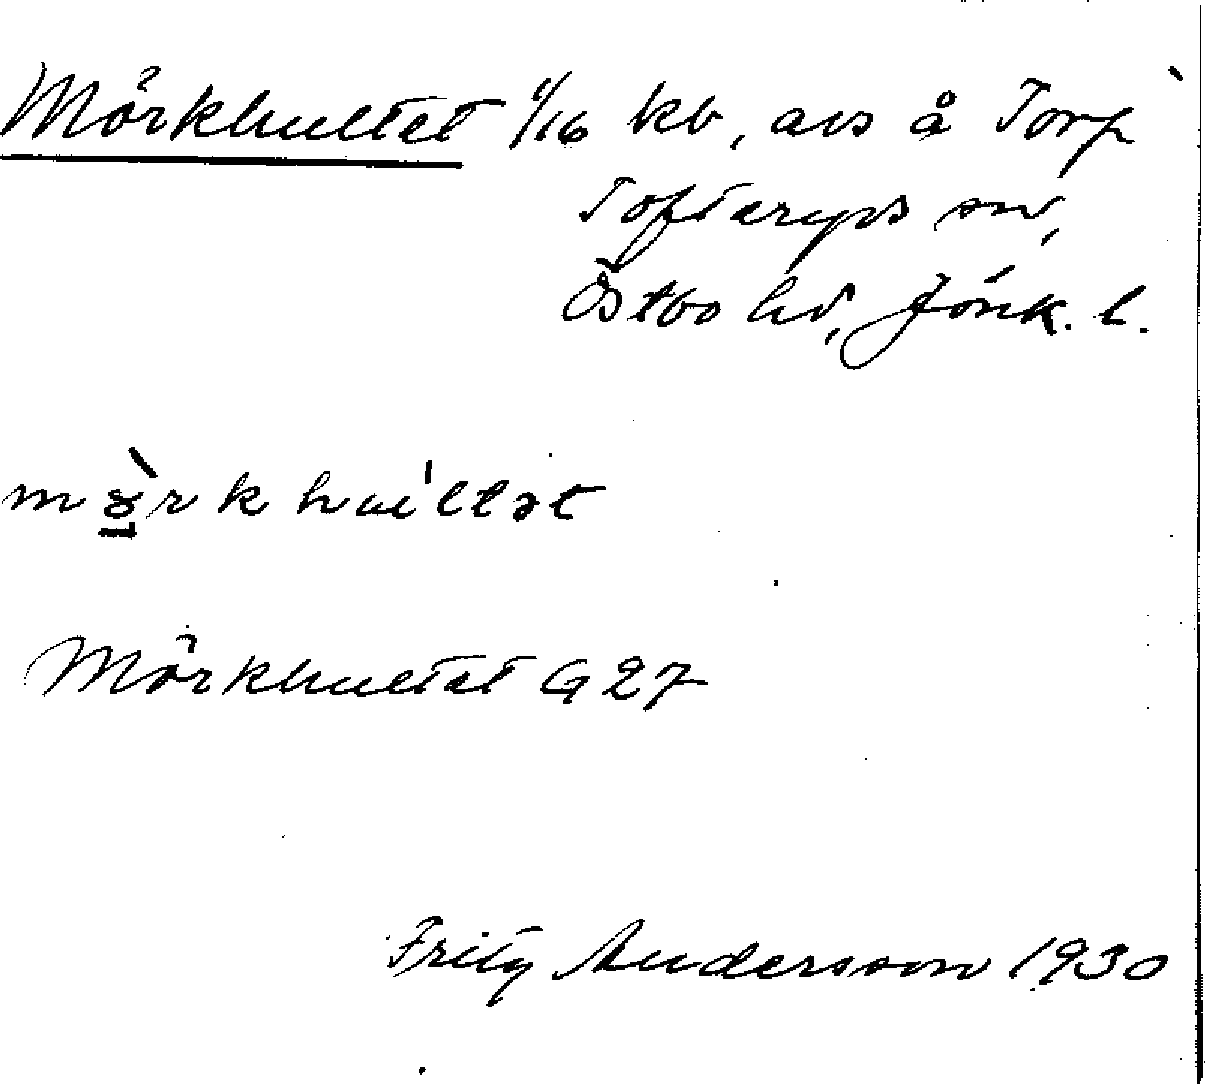 Mörkhultet 1/16 kb, avs å Torp
Toftaryds sn,
Östbo hd, Jönk. l.
mörkhultət
Mörkhultet G 27
Fritz Andersson 1930